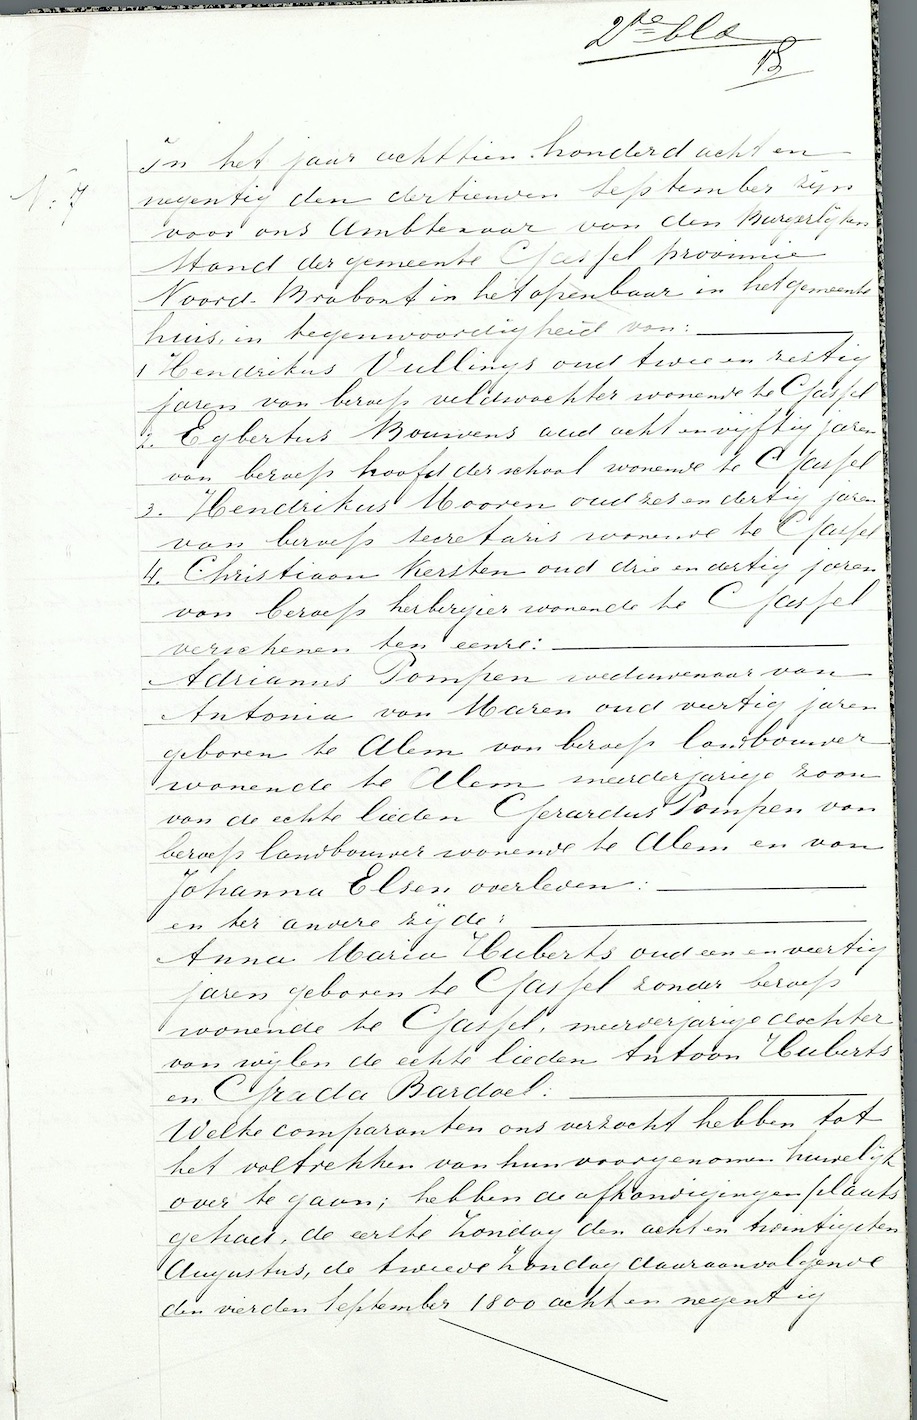 2de bla
13
N: 7
In het jaar achttien honderd acht en
negentig den dertienden September zijn
voor ons Ambtenaar van den Burgerlijken
Stand der gemeente Gassel provincie
Noord-Brabant in het openbaar in het gemeente
huis, in tegenwoordigheid van:
1 Hendrikus Vullings oud twee en zestig
jaren van beroep veldwachter wonende te Gassel
2. Egbertus Bouwens oud acht en vijftig jaren
van beroep hoofd der school wonende te Gassel
3. Hendrikus Mooren oud zes en dertig jaren
van beroep secretaris wonende te Gassel
4. Christiaan Kersten oud drie en dertig jaren
van beroep herbergier wonende te Gassel
verschenen ten eenre:
Adrianus Pompen weduwenaar van
Antonia van Maren oud veertig jaren
geboren te Alem van beroep landbouwer
wonende te Alem meerderjarige zoon
van de echte lieden Gerardus Pompen van
beroep landbouwer wonende te Alem en van
Johanna Elsen overleden:
en ter andere zijde:
Anna Maria Huberts oud een en veertig
jaren geboren te Gassel zonder beroep
wonende te Gassel, meerderjarige dochter
van wijlen de echte lieden Antoon Huberts
en Grada Bardoel:
Welke comparanten ons verzocht hebben tot
het voltrekken van hun voorgenomen huwelijk
over te gaan; hebben de afkondigingen plaats
gehad, de eerste Zondag den acht en twintigsten
Augustus, de tweede Zondag daaraanvolgende
den vierden September 1800 acht en negentig